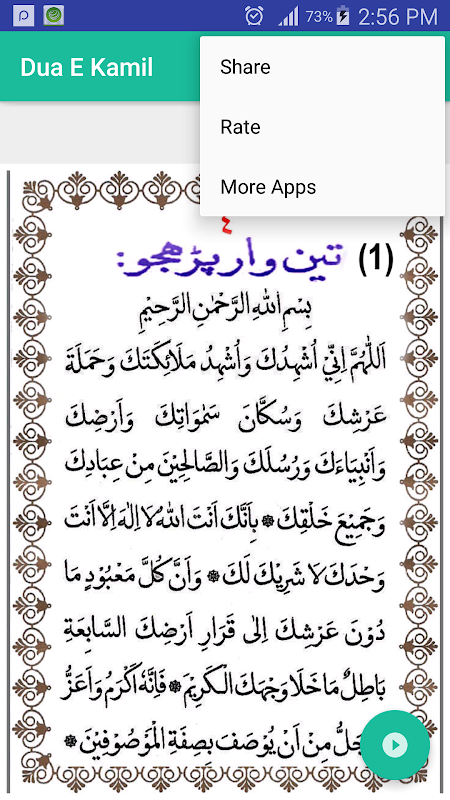 73% 2:56 PM
Dua E Kamil
Share
Rate
More Apps
٤
(1) تين وار پڙهجو:
بِسْمِ اللهِ الرَّحْمٰنِ الرَّحِيْمِ
اَللّٰهُمَّ اِنِّيْ اُشْهِدُكَ وَاُشْهِدُ مَلَائِكَتَكَ وَحَمَلَةَ
عَرْشِكَ وَسُكَّانَ سَمٰوَاتِكَ وَاَرْضِكَ
وَاَنْبِيَاءَكَ وَرُسُلَكَ وَالصَّالِحِيْنَ مِنْ عِبَادِكَ
وَجَمِيْعَ خَلْقِكَ ۞ بِاَنَّكَ اَنْتَ اللهُ لَا اِلٰهَ اِلَّا اَنْتَ
وَحْدَكَ لَا شَرِيْكَ لَكَ ۞ وَاَنَّ كُلَّ مَعْبُوْدٍ مَا
دُوْنَ عَرْشِكَ اِلٰى قَرَارِ اَرْضِكَ السَّابِعَةِ
بَاطِلٌ مَاخَلَا وَجْهَكَ الْكَرِيْمَ ۞ فَاِنَّهٗ اَكْرَمُ وَاَعَزُّ
جَلُّ مِنْ اَنْ يُوْصَفَ بِصِفَةِ الْمَوْصُوْفِيْنَ ۞